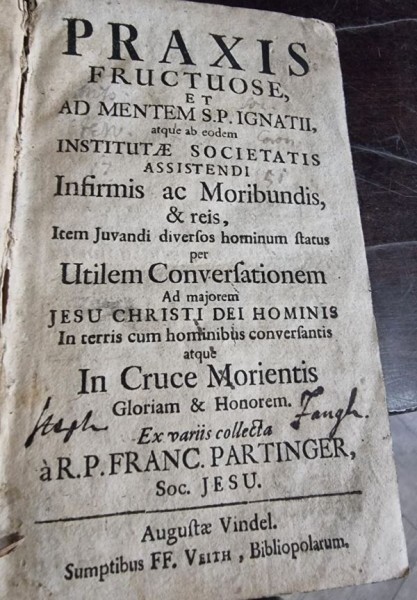 PRAXIS
FRUCTUOSE,
ET
AD MENTEM S.P. IGNATII,
atque ab eodem
INSTITUTÆ SOCIETATIS
ASSISTENDI
Infirmis ac Moribundis,
& reis,
Item Juvandi diverſos hominum ſtatus
per
Utilem Converſationem
Ad majorem
JESU CHRISTI DEI HOMINIS
In terris cum hominibus converſantis
atque
In Cruce Morientis
Gloriam & Honorem.
Ex variis collecta
à R.P. FRANC. PARTINGER,
Soc. JESU.
Auguſtæ Vindel.
Sumptibus FF. VEITH, Bibliopolarum.